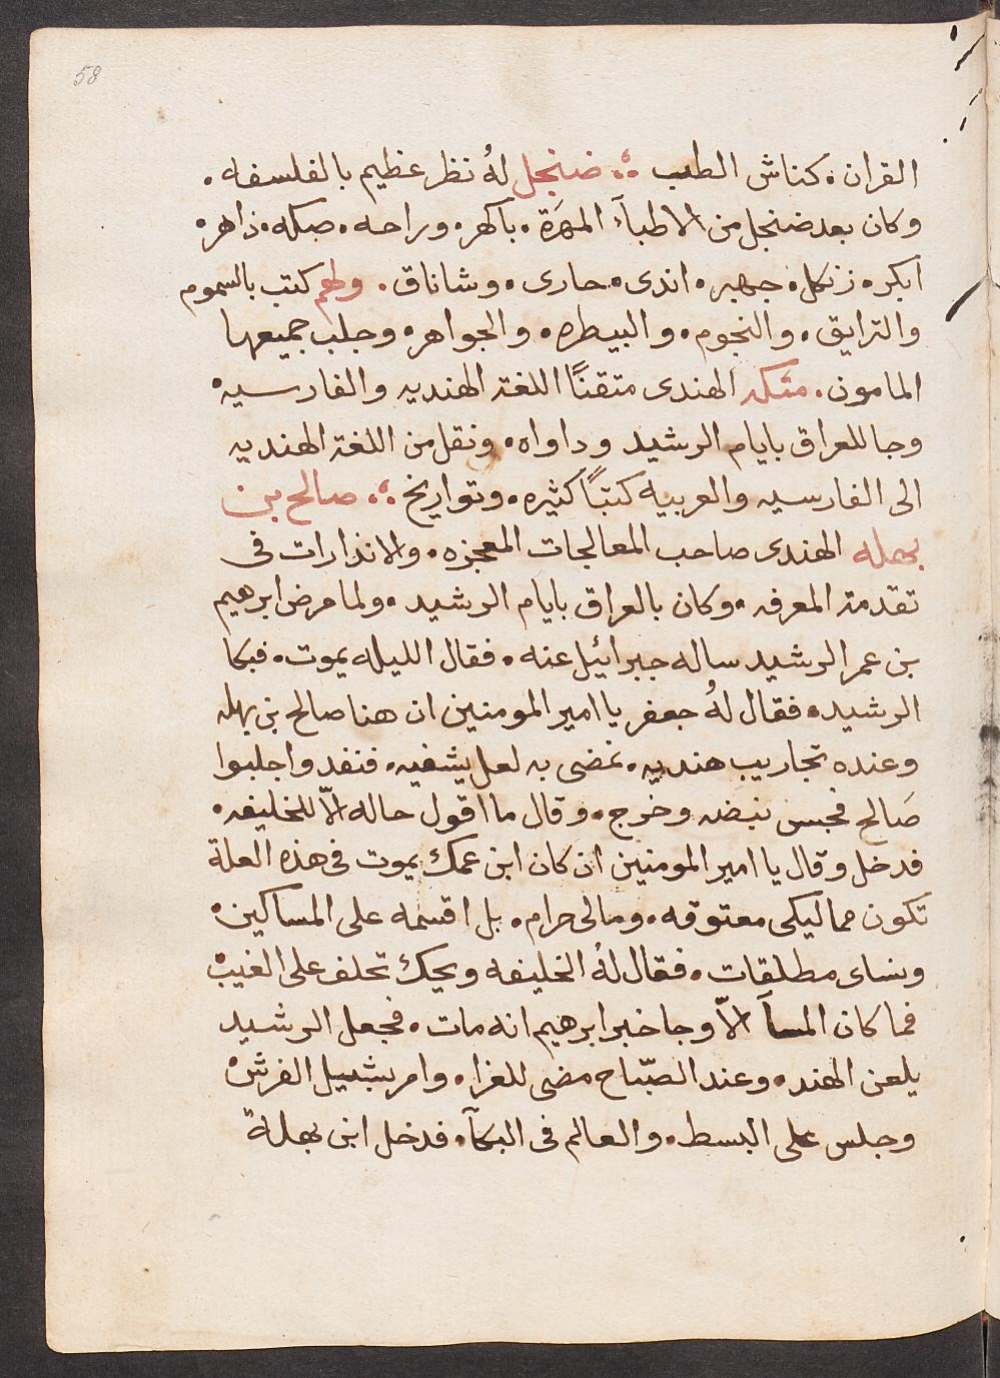 58
القران. كناش الطب ؞ ضنجل لهُ نظر عظيم بالفلسفه.
وكان بعد ضنجل من الاطبآء المهَرة. باكهر. وراحه. صبكه. ذاهر.
ابكر. زنكل. جهبر. اندى. حارى. وشاناق. ولهم كتب بالسموم
والترايق. والنجوم. والبيطره. والجواهر. وجلب جميعها
المامون. منكه الهندى متقنًا اللغة الهنديه والفارسيه.
وجا للعراق بايام الرشيد وداواه. ونقل من اللغة الهنديه
الى الفارسيه والعربيه كتبًا كثيره. وتواريخ ؞ صالح بن
بهله الهندى صاحب المعالجات المعجزه. والانذارات فى
تقدمة المعرفه. وكان بالعراق بايام الرشيد. ولما مرض ابرهيم
بن عم الرشيد ساله جبرائيل عنه. فقال الليله يموت. فبكا
الرشيد. فقال لهُ جعفر يا امير المومنين ان هنا صالح بن بهله
وعنده تجاريب هنديه. نمضى به لعل يشفيه. فنفد واجلبوا
صَالح فجس نبضه وخرج. وقال ما اقول حاله الّا للخليفه.
فدخل وقال يا امير المومنين ان كان ابن عمك يموت فى هذه العلة
تكون مماليكى معتوقه. ومالى حرام. بل اقسمه على المساكين.
ونساى مطلقات. فقال لهُ الخليفه ويحك تحلف على الغيب.
فما كان المسآ الّا وجا خبر ابرهيم انه مات. فجعل الرشيد
يلعن الهند. وعند الصّباح مضى للعزا. وامر بشيل الفرش.
وجلس على البسط. والعالم فى البكآ. فدخل ابن بهلة